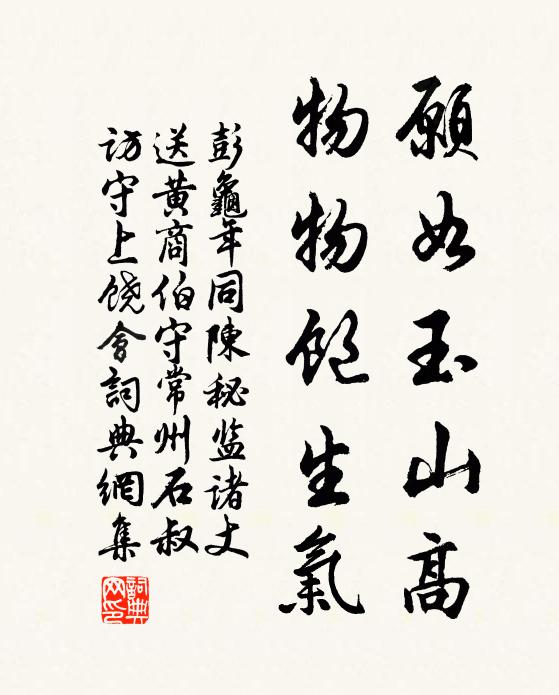 願如玉山高
物物飽生氣
彭龜年同陳秘监諸丈
送黄商伯守常州石叔
訪守上饒會詞典網集
詞典
网印